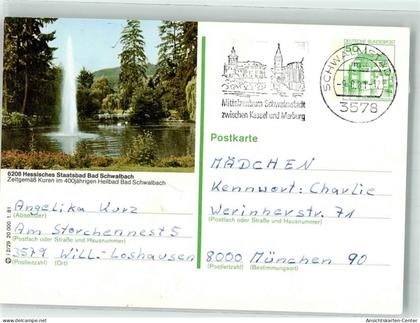 DEUTSCHE BUNDESPOST
SCHWALMSTADT
3578
Mittelzentrum Schwalmstadt
zwischen Kassel und Marburg
6208 Hessisches Staatsbad Bad Schwalbach
Zeitgemäß Kuren im 400jährigen Heilbad Bad Schwalbach
Postkarte
Angelika Kurz
(Absender)
Am Storchennest 5
(Postfach oder Straße und Hausnummer)
3579 Will.-Loshausen
(Postleitzahl) (Ort)
MÄDCHEN
Kennwort: Charlie
Werinherstr. 71
(Postfach oder Straße und Hausnummer)
8000 München 90
(Postleitzahl) (Bestimmungsort)
Ansichtskarten-Center